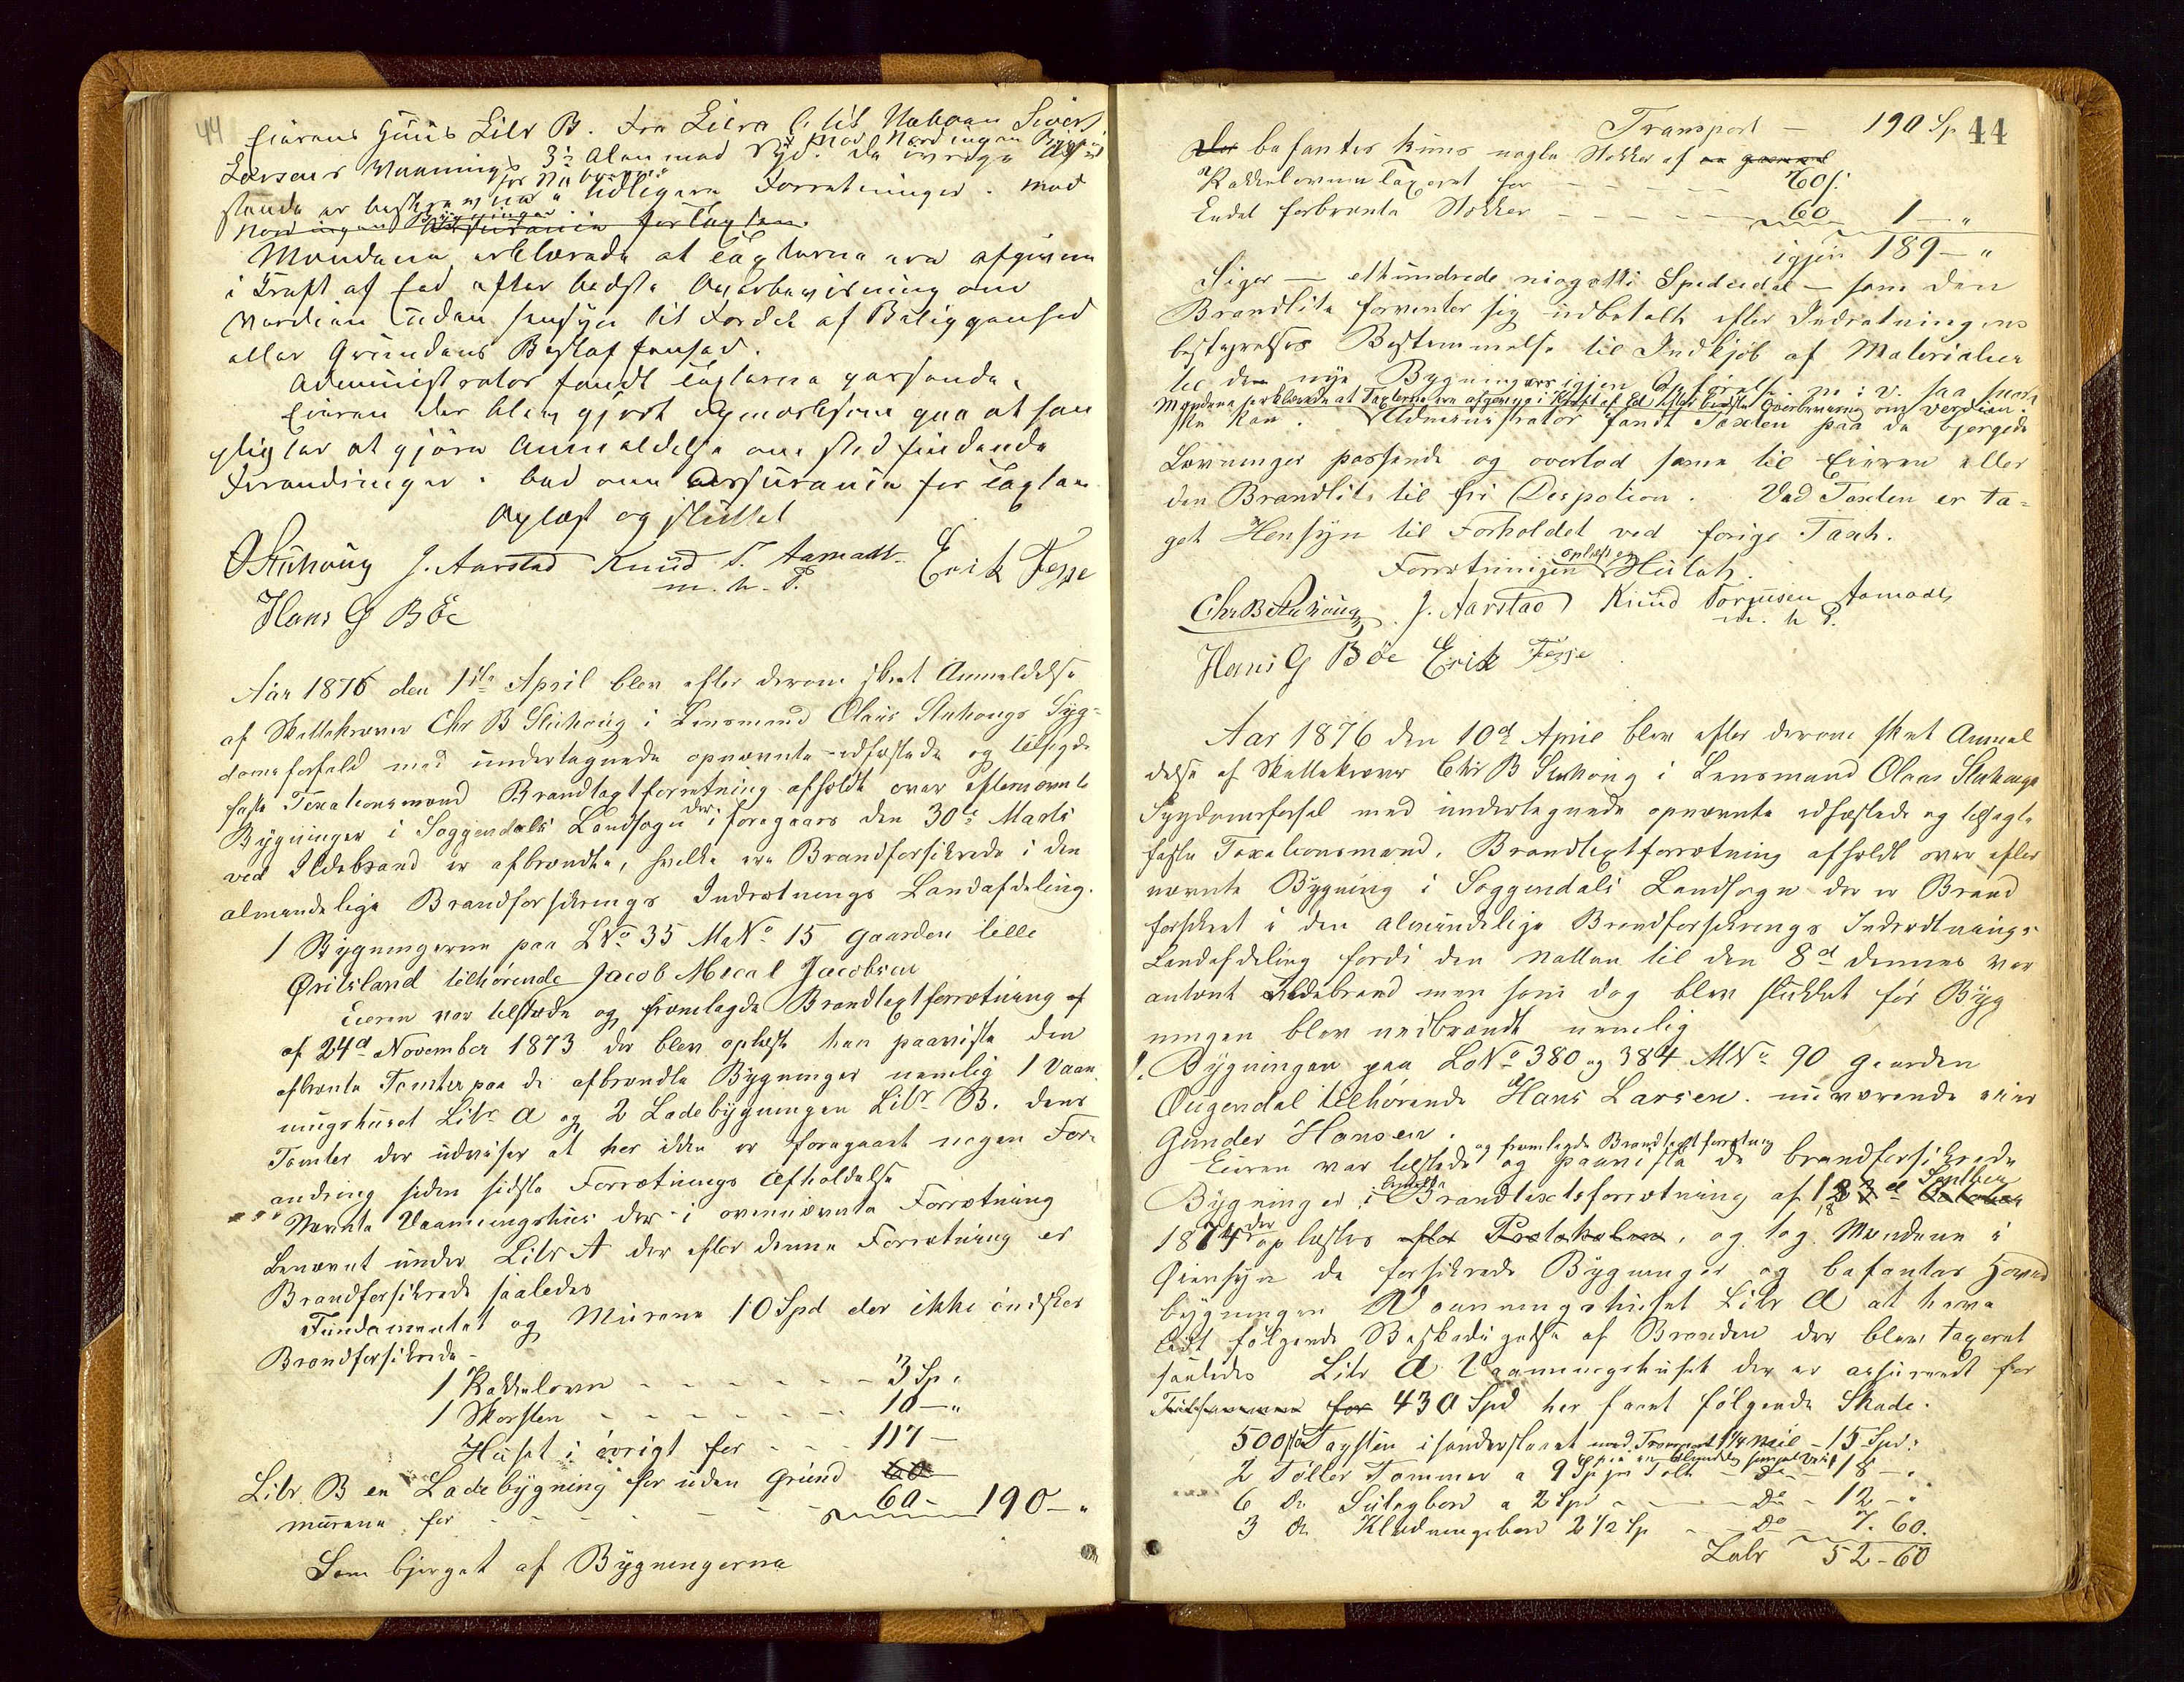 44
Eierens Huus Litr B. fra Litra C til Naboen Sivert
Larsens Vaaning 3½ Alen mod Syd. De øvrige Af
stande er beskrevne i tidligere Forretninger. mod
Nordingen Bygninger
Mændene erklærede at Taxterne ere afgivne
i Kraft af Eed efter bedste Overbevisning om
Værdien uden Hensyn til Fordel af Beliggenhed
eller Grundens Beskaffenhed.
Administrator fandt Taxterne passende.
Eieren der blev gjort opmærksom paa at han
pligter at gjøre Anmeldelse om stedfindende
Forandringer. bad om Assurance for Taxten.
Oplæst og sluttet
OStuhoug J. Aarstad Knud T. Aamodt Erik Fejse
m. h. P.
Hans G Böe
Aar 1876 den 1ste April blev efter derom skeet Anmeldelse
af Skattekræver Chr B Stuhoug i Lensmand Olaus Stuhougs Syg-
domsforfald med undertegnede opnævnte edfæstede og tilsagte
faste Taxationsmænd Brandtaxtforretning afholdt over eftermævnte
Bygninger i Soggendals Landsogn der i foregaars den 30te Marts
ved Ildebrand er afbrændte, hvilke ere Brandforsikrede i den
almindelige Brandforsikrings Indretnings Landafdeling.
1 Bygningerne paa LNo 35 MNo 15 Gaarden lille
Øritsland tilhørende Jacob Mical Jacobsen
Eieren var tilstede og fremlagde Brandtaxtforretning af
af 24de November 1873 der blev oplæst han paaviste den
afbrænte Tomter paa de afbrændte Bygninger nemlig 1 Vaan
ningshuset Litr A og 2 Ladebygningen Litr B. dens
Tomter der udviser at her ikke er foregaaet nogen For-
andring siden sidste Forretnings Afholdelse
Nævnte Vaaningshus der i ovennævnte Forretning
benævnt under Litr A der efter denne Forretning er
Brandforsikrede saaledes
Fundamentet og Murene 10 Spd der ikke ønskes
Brandforsikrede -
1 Kakkelovn - - - - - - 3 Sp "
1 Skorsten - - - - - - 10 - "
Huset i øvrigt for - - - 117 -
Litr B en Ladebygning for uden Grund 60
murene for - - - - - - 60 - 190 - "
Som bjerget af Bygningerne
Transport - 190 Sp 44
Der befantes kuns nogle Stokker af en gammel
Kakkelovn taxeret for - - - - - 60 s:
Endel forbrænte Stokker - - - - - 60 1 - "
igjen 189 - "
Siger - etkundrede niogotti Speciedal - som den
Brandlite forventer sig udbetalt efter Indretningens
bestyrelses Bestemmelse til Indkjøb af Materialier
til den nye Bygnings igjen Opførelse m: v. saa snart
Mændene erklærede at Taxterne ere afgivne i Kraft af Ed efter bedste Overbevisning om Verdien.
ske kan. Administrator fandt Taxten paa de bjergede
Levninger passende og overlod samme til Eieren eller
den Brandlite til fri Despotion. Ved Taxten er ta-
get Hensyn til Forholdet ved forige Taxt.
Forretningen oplæst og Sluttet.
Chr B Stuhoug. J. Aarstad Knud Torjusen Aamodt
m. h P.
Hans G Böe Erik Fejse
Aar 1876 den 10de April blev efter derom skeet Anmel
delse af Skattekræver Chr B Stuhoug i Lensmand Olaus Stuhougs
Sygdomsforfal med undertegnede opnævnte edfæstede og tilsagte
faste Taxationsmænd, Brandtaxtforretning afholdt over efter
nævnte Bygning i Soggendals Landsogn der er Brand
forsikret i den almindelige Brandforsikrings Indredtnings
Landafdeling fordi den Natten til den 8de dennes var
antændt Ildebrand men som dog blev slukket før Byg
ningen blev nedbrændt nemlig
1. Bygningen paa LNo 380 og 384 MNo 90 gaarden
Øugendal tilhørende Hans Larsen. nuværende eier
Gunder Hansen.
Eieren var tilstede og fremlagde Brandtaxtforretning og paaviste de brandforsikrede
Bygninger i Brandtaxtsforretning af 18de Septbr
1874 der oplæstes efter Protokolen, og tog Mændene i
Øiensyn de forsikrede Bygninger og befantes Hoved
bygningen Vaanningshuset Litr A at have
lidt følgende Beskadigelse af Branden der blev taxeret
saaledes Litr A Vaanningshuset der er assureret for
Tilsammen for 430 Spd her faaet følgende Skade.
500 st Tagsten isønderslaaet med Transport 1¼ Meil - 15 Spd:
2 Tølter Tømmer a 9 Sp pr Tølt - do - 18 - "
6 do Sulegbord a 2 Spd - - - do - 12 - "
3 do Kledningsbord 2 1/2 Sp - - do - 7. 60.
Latr 52 - 60